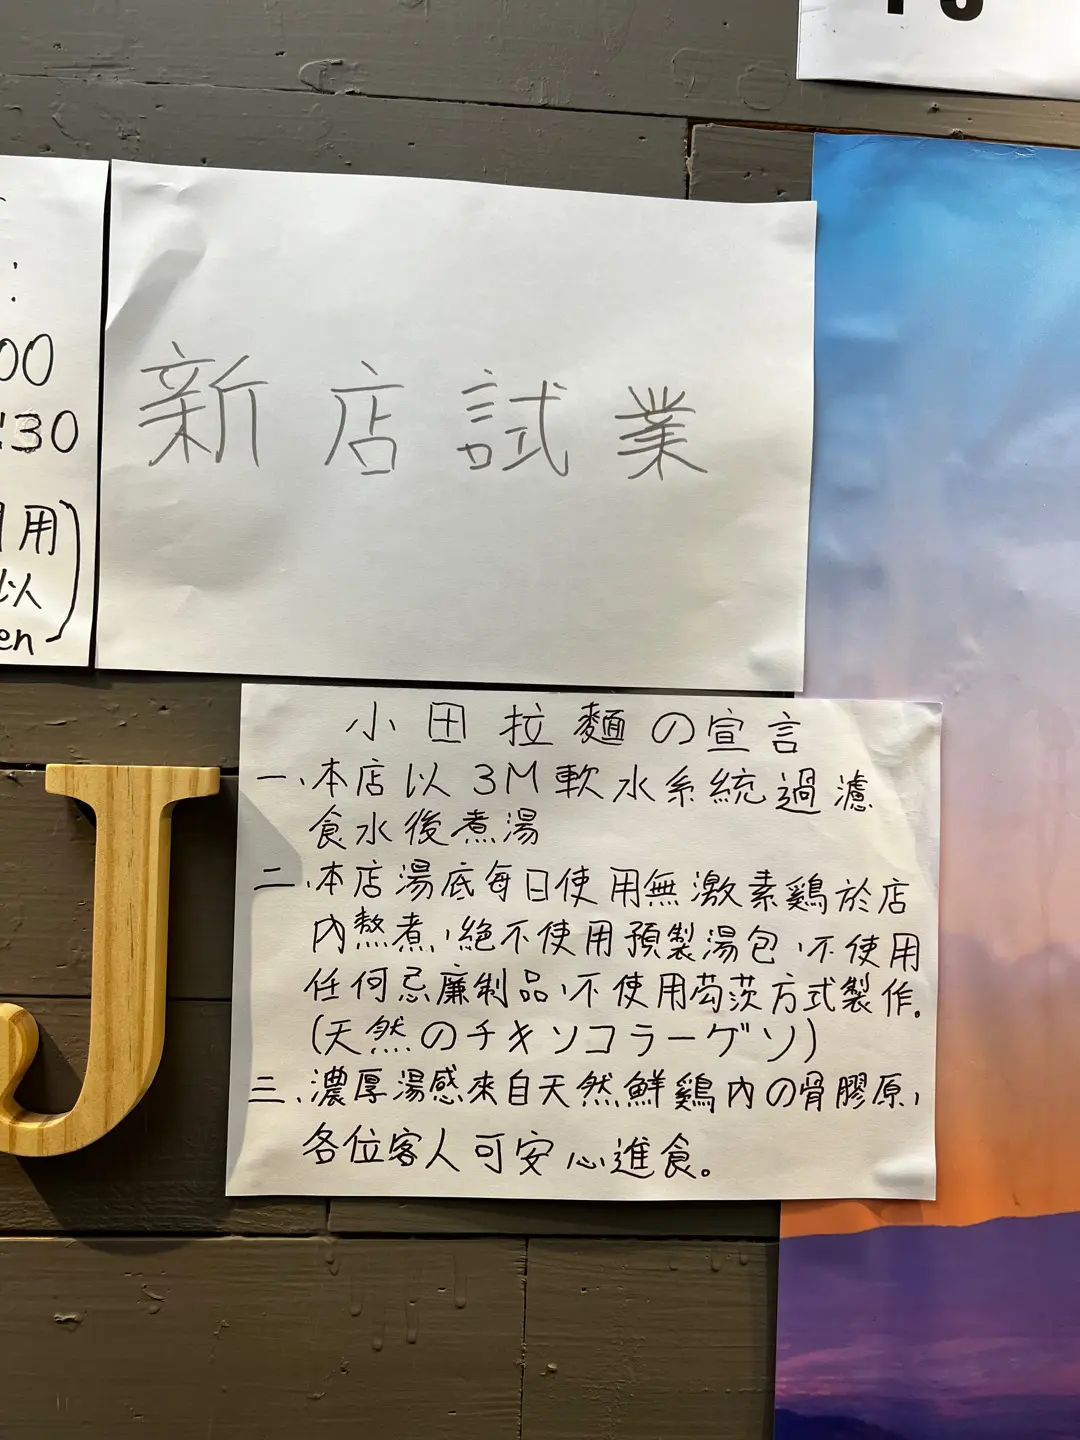 :
00
:30
用
以
en)
新店試業
小田拉麵の宣言
一、本店以3M軟水系統過濾
食水後煮湯
二、本店湯底每日使用無激素鷄於店
內熬煮,絕不使用預製湯包,不使用
任何忌廉制品,不使用芶茨方式製作。
(天然のチキソコラーゲソ)
三、濃厚湯感來自天然鮮鷄內の骨膠原,
各位客人可安心進食。
J